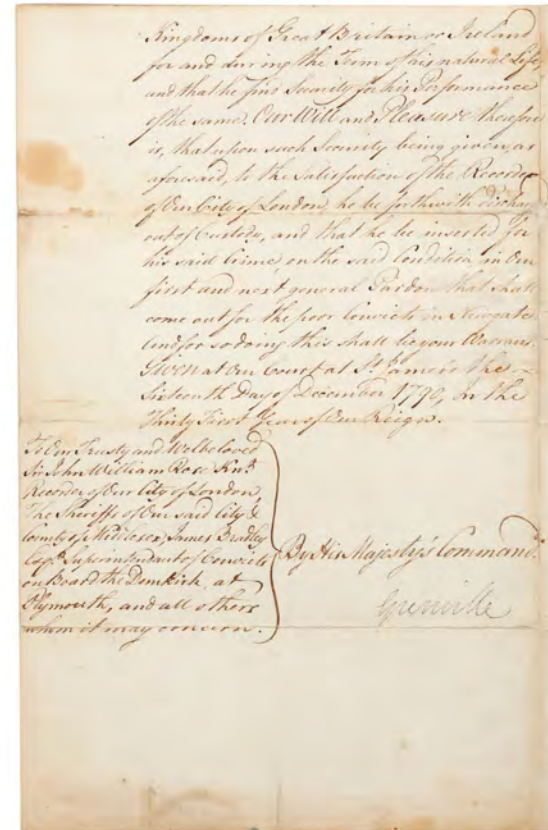 Kingdoms of Great Britain or Ireland
for and during the Term of his natural Life
and that he find Security for his Performance
of the same. Our Will and Pleasure therefore
is, that upon such Security being given, as
aforesaid, to the Satisfaction of the Recorder
of Our City of London, he be forthwith discharg
out of Custody, and that he be inserted for
his said Crime, on the said Condition, in Our
first and next general Pardon that shall
come out for the poor Convicts in Newgate
And for so doing this shall be your Warrant.
Given at Our Court at St. James's the
Sixteenth Day of December 1790, In the
Thirty First Year of Our Reign.
To Our Trusty and Welbeloved
Sir John William Rose Knt.
Recorder of Our City of London,
The Sheriffs of Our said City &
County of Middlesex, James Bradley
Esqr. Superintendant of Convicts
on Board the Dunkirk, at
Plymouth, and all others
whom it may concern.
By His Majesty's Command.
Grenville